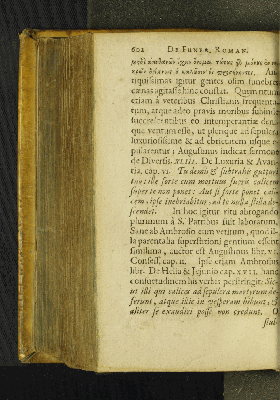 602 DE FUNER. ROMAN.
tiquissimas igitur gentes olim funebres
cœnas agitasse hinc constat. Quin ritum
etiam à veteribus Christianis frequenta-
tum, atque adeo pravis moribus subinde
succrescentibus eo intemperantiæ deni-
que ventum esse, ut plerique ad sepulcra
luxuriosissime & ad ebrietatem usque
Augustinus indicat sermone
de Diversis. XLIII. De Luxuria & Avari-
tia, cap. VI. Tu demis & subtrahis gutturi
tuo: ille forte cum mortuus fuerit calicem
super te non ponet: Aut si forte ponet cali-
cem, ipse inebriabitur: ad te nulla stilla de-
scendet. In hoc igitur ritu abrogando
plurimum à S. Patribus fuit laboratum.
Sane ab Ambrosio eum vetitum, quod il-
la parentalia superstitioni gentium essent
simillima, auctor est Augustinus libr. VI.
Confess. cap. II. Ipse etiam Ambrosius
libr. De Helia & Jejunio cap. XVII. hanc
consuetudinem his verbis perstringit: Sic-
ut illi qui calices ad sepulcra martyrum de-
ferunt, atque illic in vesperam bibunt, &
aliter se exaudiri posse non credunt. O
stul-